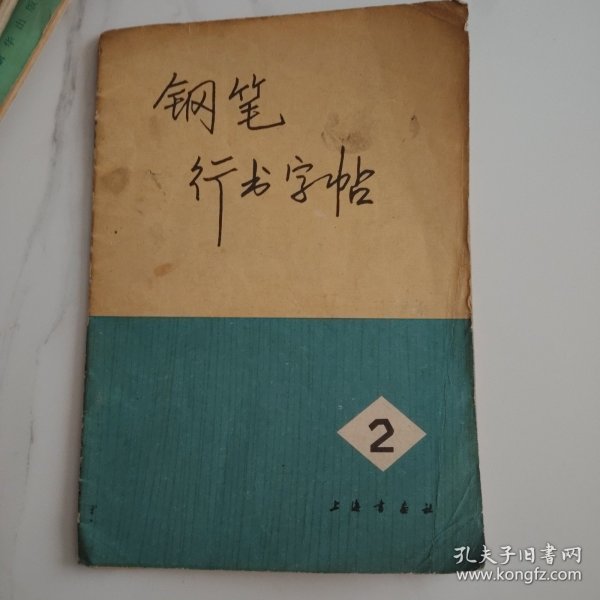 钢笔
行书字帖
2
上海书画社
孔夫子旧书网
www.kongfz.com